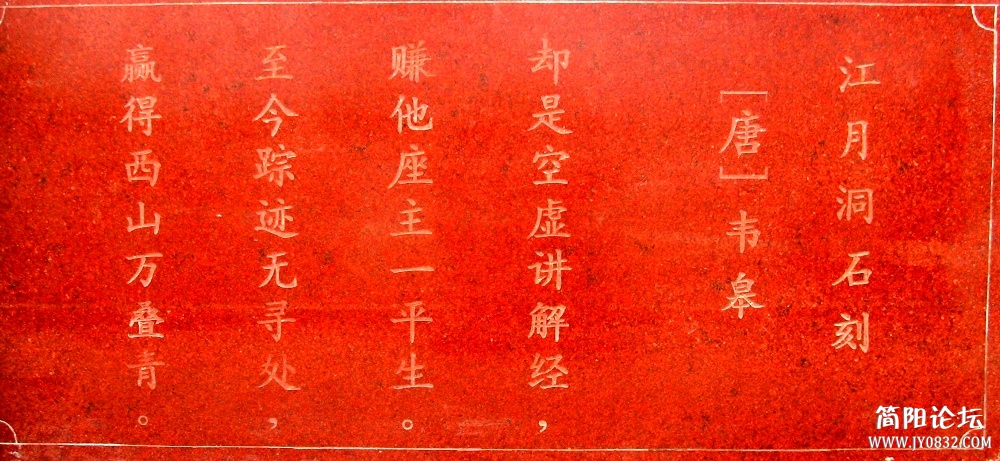 江月洞石刻
[唐]韦皋
却是空虚讲解经，
赚他座主一平生。
至今踪迹无寻处，
赢得西山万叠青。
简阳论坛
WWW.JY0832.COM